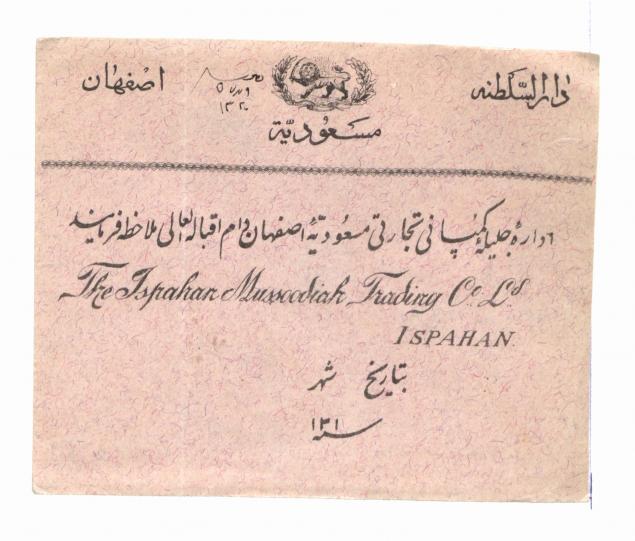 دارالسّلطنه
اصفهان
۱۳۲۰
مسعودیّة
اداره جلیلهٔ کمپانی تجارتی مسعودیّهٔ اصفهان دام اقباله العالی ملاحظه فرمایند
The Ispahan Mussoodiah Trading Co Ld
ISPAHAN
بتاریخ شهر
سنه ۱۳۱